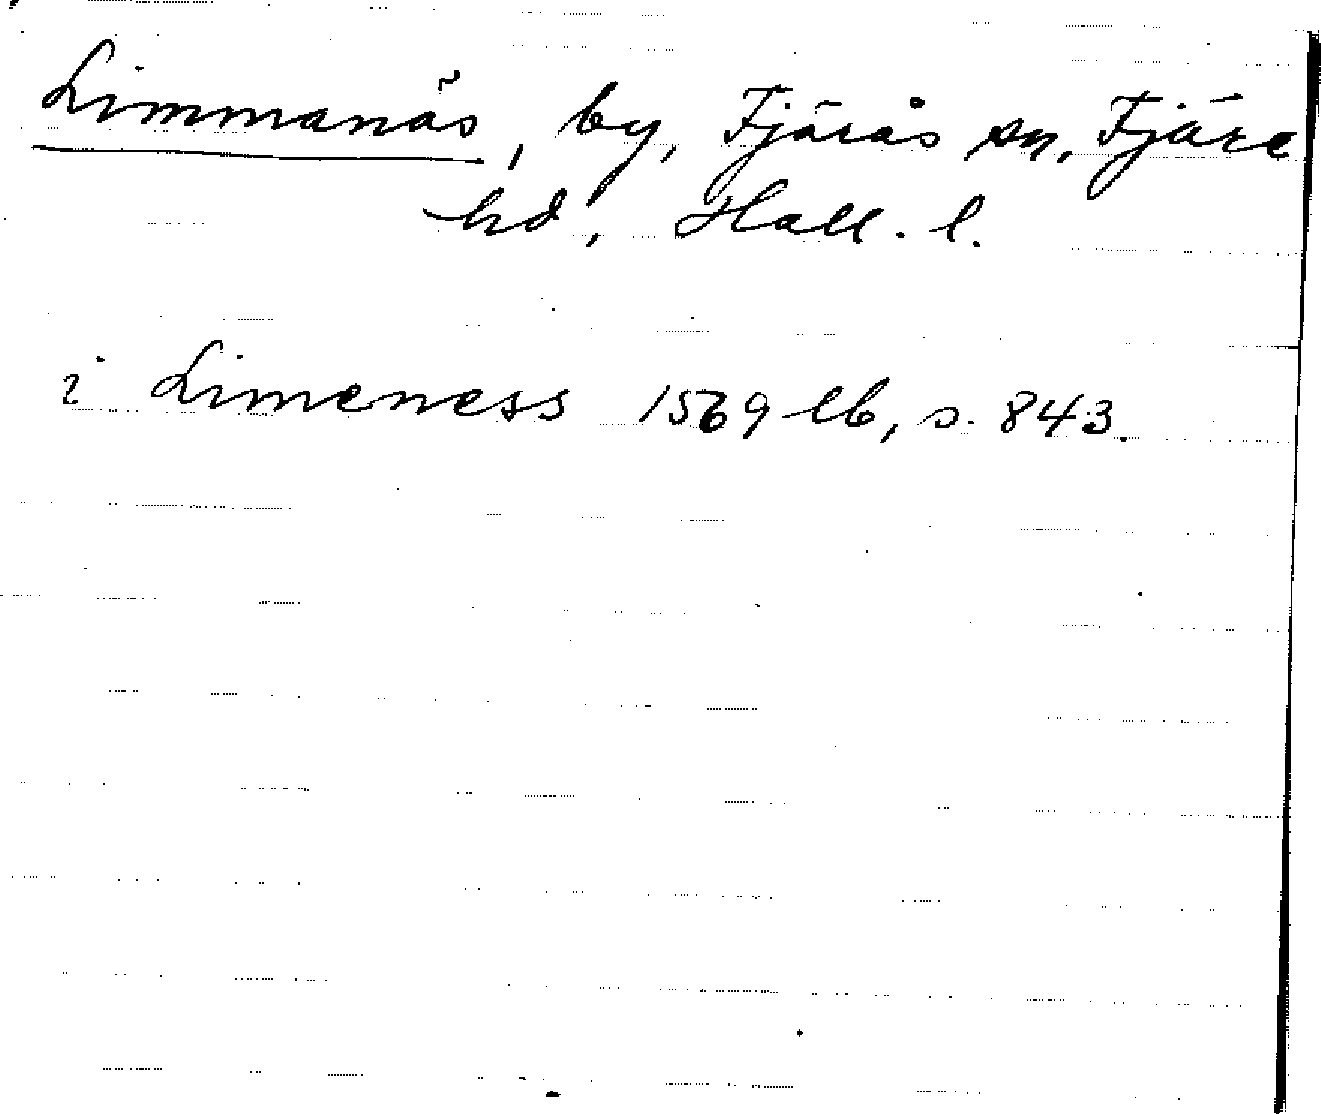 Limmanäs, by, Fjärås sn, Fjäre
hd, Hall. l.
i Limeness 1569 lb, s. 843.